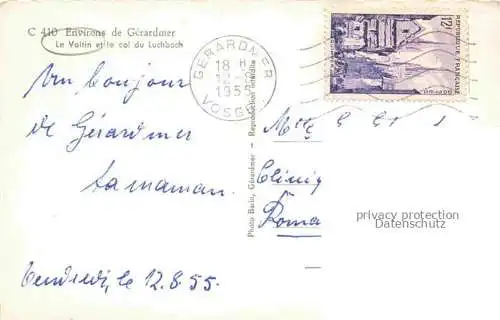 C 410 Environs de Gérardmer
Le Valtin et le col du Luchbach
GERARDMER
18 H
1955
VOSGES
12F
REPUBLIQUE FRANÇAISE
Un bonjour
de Gérardmer
ta maman.
Vendredi, le 12.8.55.
Photo Barin, Gérardmer — Reproduction interdite
Melle
Cliniq
Roma
privacy protection
Datenschutz